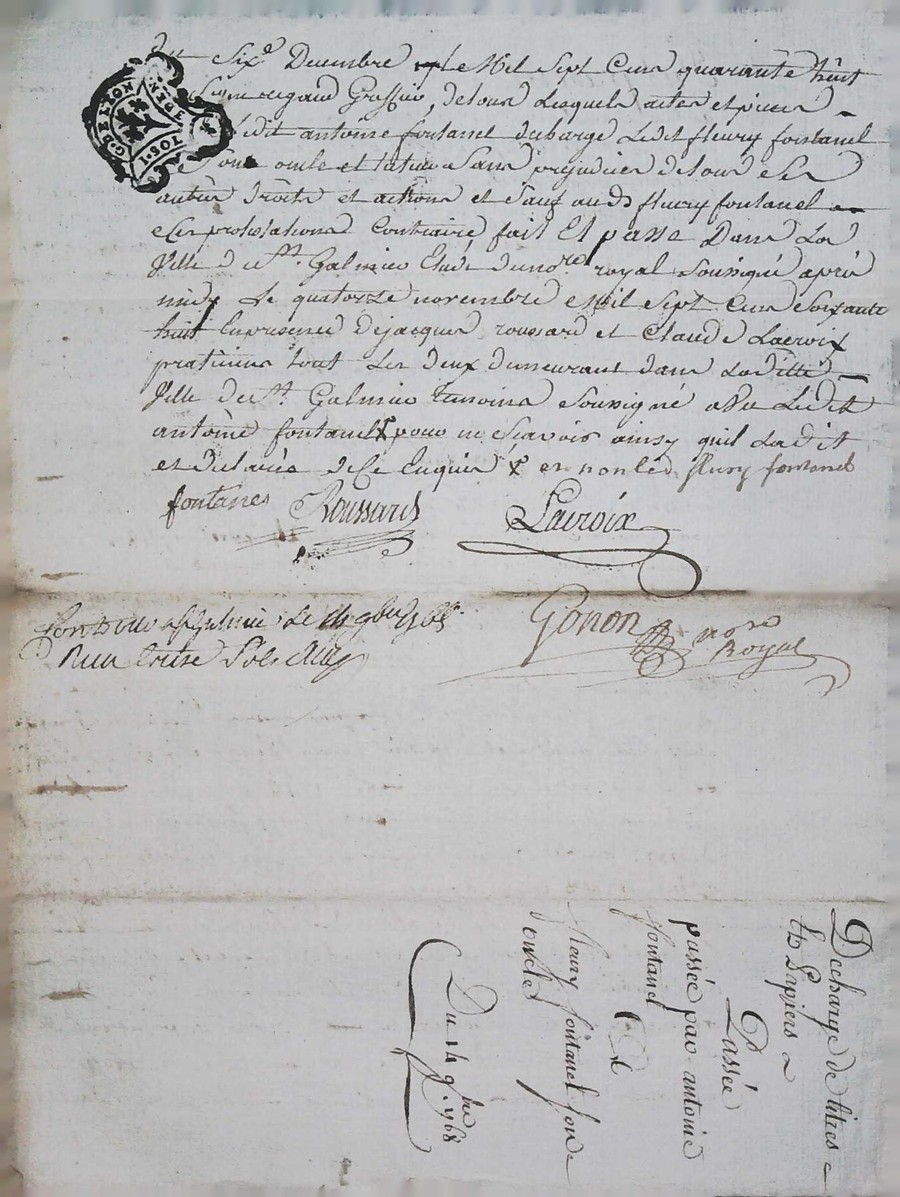 G. DE LION
1. SOL
Six.e Decembre Mil Sept Cens quarante huit
de tous Lesquels actes et pieces
Ledit antoine fontanel decharge Ledit fleury fontanel
Son oncle et tuteur Sans prejudice de tous Ses
autres droits et actions et Sauf aud fleury fontanel
Ses protestations Contraire fait Et passé Dans La
Ville de St. Galmier Etude du no.re royal Soussigné après
midy Le quatorze novembre Mil Sept Cens Soixante
huit En presence de jacques roussard et Claude Lacroix
praticiens tout Les deux demeurant dans Laditte
Ville de St. Galmier temoins Soussigné Ledit
antoine fontanel pour ne Scavoir ainsy quil La dit
et declaré de Ce Enquis et non led fleury fontanel
fontanel Roussard Lacroix
St Galmier Le 14 9bre 1768
Reçu treize Sols
Gonon no.re
Royal
Decharge de titres
et Papiers
Passée
passée par antoine
fontanel
fleury fontanel Son
oncle
Du 14 9.bre 1768